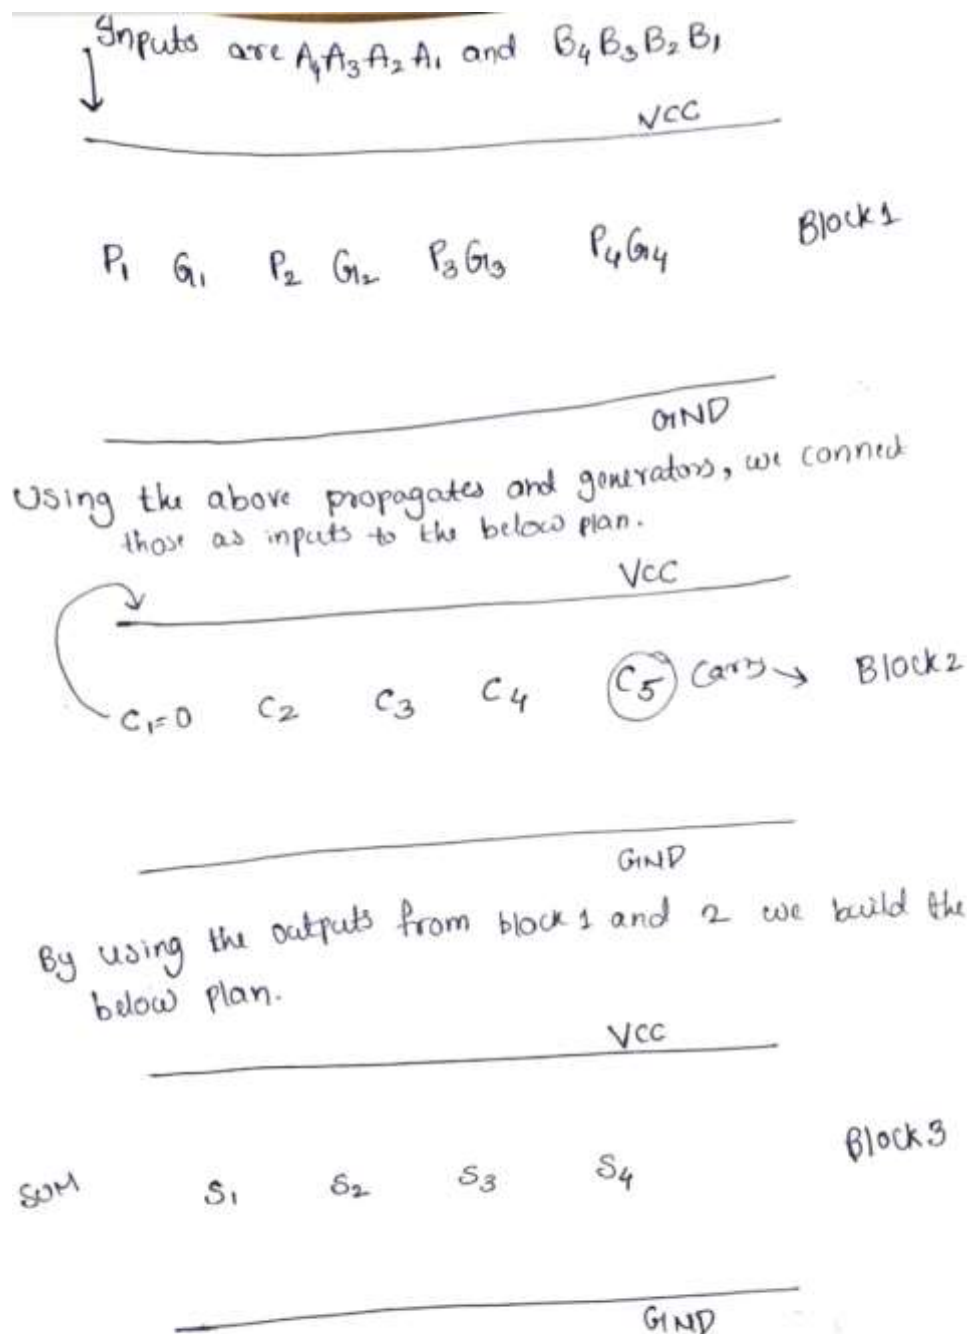 Inputs are A₄A₃A₂A₁ and B₄B₃B₂B₁
VCC
P₁ G₁ P₂ G₂ P₃G₃ P₄G₄ Block1
GND
Using the above propagates and generators, we connect
those as inputs to the below plan.
VCC
C₁=0 C₂ C₃ C₄ C₅ Carry → Block2
GND
By using the outputs from block 1 and 2 we build the
below plan.
VCC
SUM S₁ S₂ S₃ S₄ Block3
GND